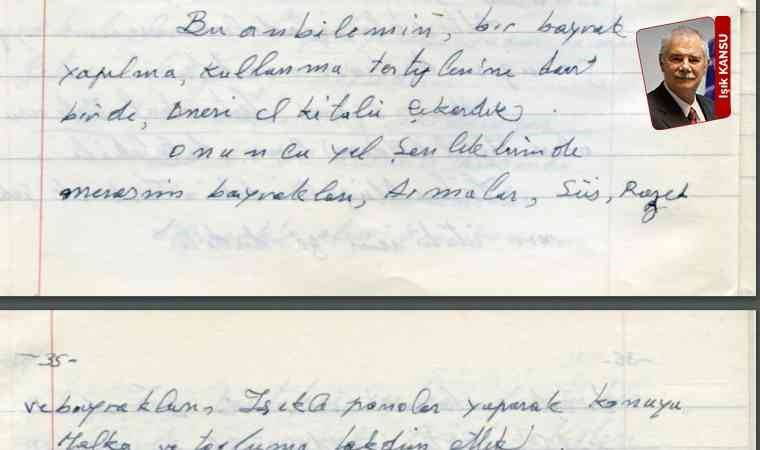 Bu anbilemin, bir bayrak
yapılma, kullanma tertiplerine dair
birde, Öneri el kitabı çıkardık.
Onuncu yıl Şenliklerinde
merasim bayrakları, Armalar, Süs, Rozet
Işık KANSU
-35-
ve bayrakları, Işıklı panolar yaparak konuyu
Halka ve topluma takdim ettik